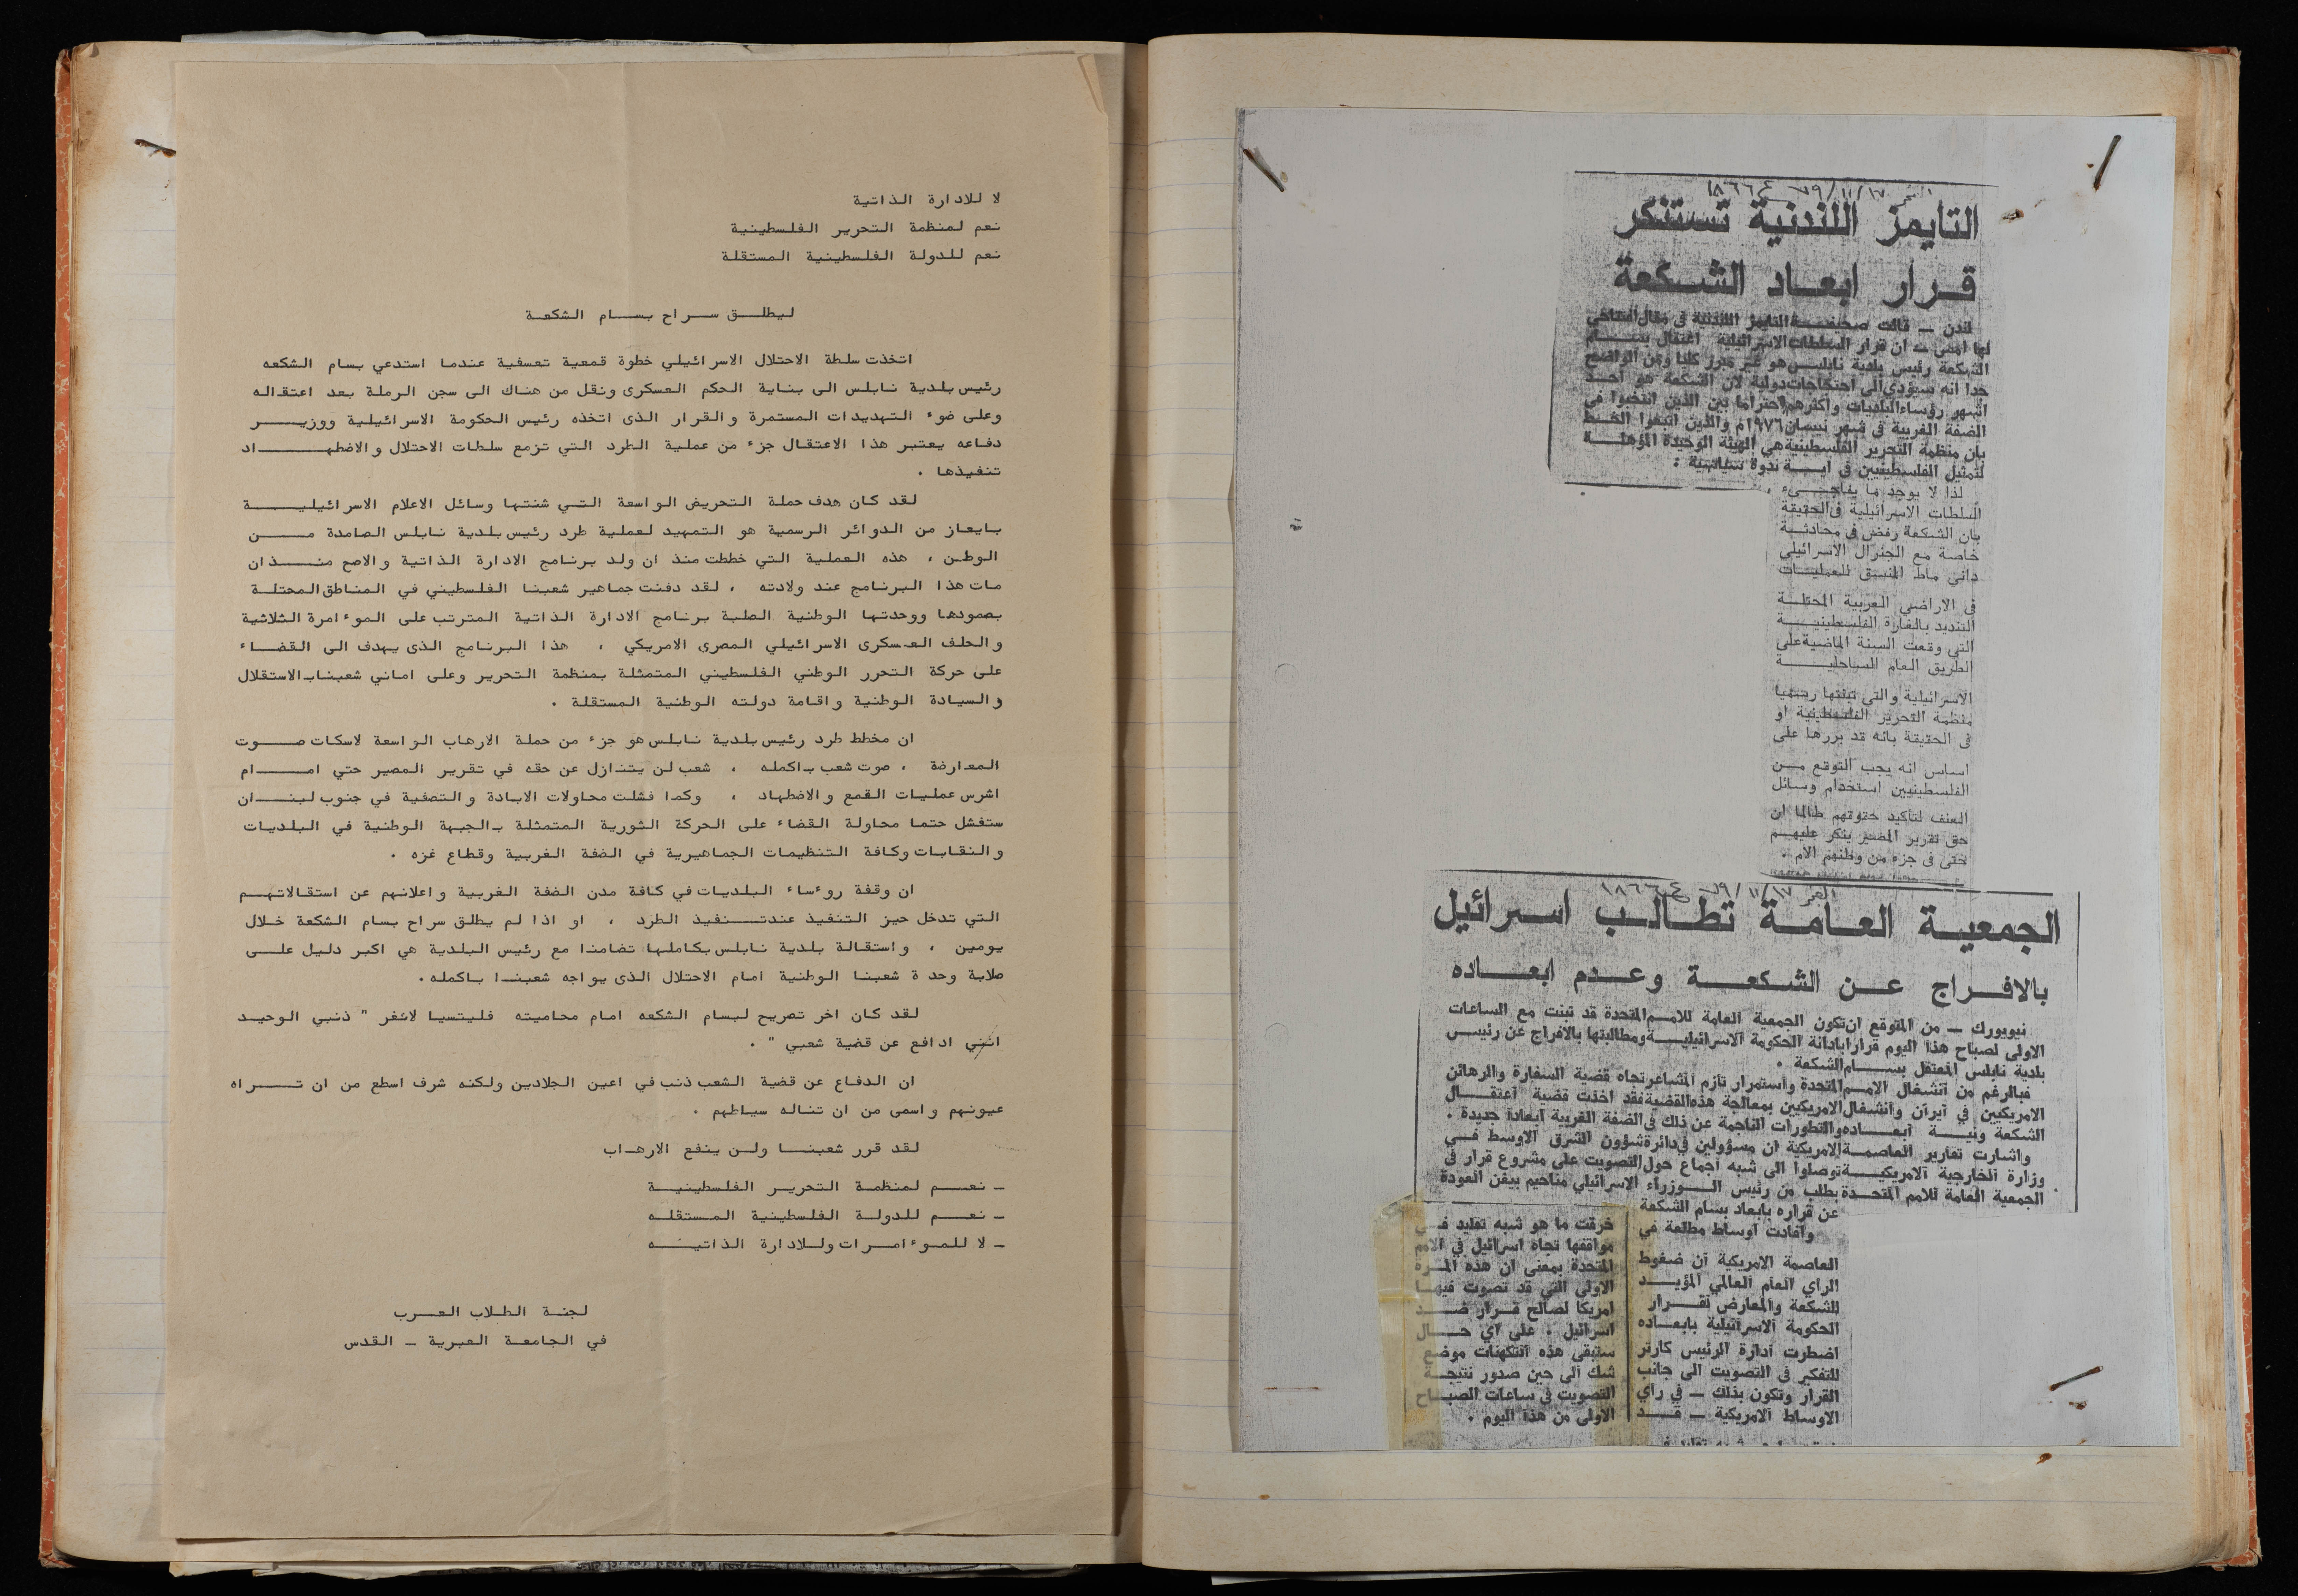 لا للادارة الذاتية
نعم لمنظمة التحرير الفلسطينية
نعم للدولة الفلسطينية المستقلة
ليطلق سراح بسام الشكعة
اتخذت سلطة الاحتلال الاسرائيلي خطوة قمعية تعسفية عندما استدعي بسام الشكعه
رئيس بلدية نابلس الى بناية الحكم العسكرى ونقل من هناك الى سجن الرملة بعد اعتقاله
وعلى ضوء التهديدات المستمرة والقرار الذى اتخذه رئيس الحكومة الاسرائيلية ووزير
دفاعه يعتبر هذا الاعتقال جزء من عملية الطرد التي تزمع سلطات الاحتلال والاضطهاد
تنفيذها .
لقد كان هدف حملة التحريض الواسعة التي شنتها وسائل الاعلام الاسرائيلية
بايعاز من الدوائر الرسمية هو التمهيد لعملية طرد رئيس بلدية نابلس الصامدة من
الوطن ، هذه العملية التي خططت منذ ان ولد برنامج الادارة الذاتية والاصح منذ ان
مات هذا البرنامج عند ولادته ، لقد دفنت جماهير شعبنا الفلسطيني في المناطق المحتلة
بصمودها ووحدتها الوطنية الصلبة برنامج الادارة الذاتية المترتب على الموءامرة الثلاثية
والحلف العسكرى الاسرائيلي المصرى الامريكي ، هذا البرنامج الذى يهدف الى القضاء
على حركة التحرر الوطني الفلسطيني المتمثلة بمنظمة التحرير وعلى اماني شعبناب الاستقلال
والسيادة الوطنية واقامة دولته الوطنية المستقلة .
ان مخطط طرد رئيس بلدية نابلس هو جزء من حملة الارهاب الواسعة لاسكات صوت
المعارضة ، صوت شعب باكمله ، شعب لن يتنازل عن حقه في تقرير المصير حتي امام
اشرس عمليات القمع والاضطهاد ، وكما فشلت محاولات الابادة والتصفية في جنوب لبنان
ستفشل حتما محاولة القضاء على الحركة الثورية المتمثلة بالجبهة الوطنية في البلديات
والنقابات وكافة التنظيمات الجماهيرية في الضفة الغربية وقطاع غزه .
ان وقفة روءساء البلديات في كافة مدن الضفة الغربية واعلانهم عن استقالاتهم
التي تدخل حيز التنفيذ عند تنفيذ الطرد ، او اذا لم يطلق سراح بسام الشكعة خلال
يومين ، واستقالة بلدية نابلس بكاملها تضامنا مع رئيس البلدية هي اكبر دليل على
صلابة وحدة شعبنا الوطنية امام الاحتلال الذى يواجه شعبنا باكمله.
لقد كان اخر تصريح لبسام الشكعه امام محاميته فليتسيا لانغر " ذنبي الوحيد
انني ادافع عن قضية شعبي " .
ان الدفاع عن قضية الشعب ذنب في اعين الجلادين ولكنه شرف اسطع من ان تراه
عيونهم واسمى من ان تناله سياطهم .
لقد قرر شعبنا ولن ينفع الارهاب
ـ نعم لمنظمة التحرير الفلسطينية
ـ نعم للدولة الفلسطينية المستقله
ـ لا للموءامرات وللادارة الذاتيه
لجنة الطلاب العرب
في الجامعة العبرية ـ القدس
١٧/١١/٧٩ ع ١٨٦٦
التايمز اللندنية تستنكر
قرار ابعاد الشكعة
لندن ـ قالت صحيفة التايمز اللندنية في مقال افتتاحي
لها امس ـ ان قرار السلطات الاسرائيلية اعتقال بسام
الشكعة رئيس بلدية نابلس هو غير مبرر كليا ومن الواضح
جدا انه سيؤدي الى احتجاجات دولية لان الشكعة هو احد
اشهر رؤساء البلديات واكثرهم احتراما بين الذين انتخبوا في
الضفة الغربية في شهر نيسان ١٩٧٦م والذين اتبعوا الخط
بان منظمة التحرير الفلسطينية هي الهيئة الوحيدة المؤهلة
لتمثيل الفلسطينيين في اية ندوة سياسية :
لذا لا يوجد ما يفاجىء
السلطات الاسرائيلية في الحقيقة
بان الشكعة رفض في محادثة
خاصة مع الجنرال الاسرائيلي
داني ماط المنسق للعمليات
في الاراضي العربية المحتلة
التنديد بالغارة الفلسطينية
التي وقعت السنة الماضية على
الطريق العام الساحلية
الاسرائيلية والتي تبنتها رسميا
منظمة التحرير الفلسطينية او
في الحقيقة بانه قد بررها على
اساس انه يجب التوقع من
الفلسطينيين استخدام وسائل
العنف لتاكيد حقوقهم طالما ان
حق تقرير المصير ينكر عليهم
حتى في جزء من وطنهم الام .
١٧/١١/٧٩ ع ١٨٦٦
الجمعية العامة تطالب اسرائيل
بالافراج عن الشكعة وعدم ابعاده
نيويورك ـ من المتوقع ان تكون الجمعية العامة للامم المتحدة قد تبنت مع الساعات
الاولى لصباح هذا اليوم قرارا بادانة الحكومة الاسرائيلية ومطالبتها بالافراج عن رئيس
بلدية نابلس المعتقل بسام الشكعة .
فبالرغم من انشغال الامم المتحدة واستمرار تازم المشاعر تجاه قضية السفارة والرهائن
الامريكيين في ايران وانشغال الامريكيين بمعالجة هذه القضية فقد اخذت قضية اعتقال
الشكعة ونية ابعاده والتطورات الناجمة عن ذلك في الضفة الغربية ابعادا جديدة .
واشارت تقارير العاصمة الامريكية ان مسؤولين في دائرة شؤون الشرق الاوسط في
وزارة الخارجية الامريكية توصلوا الى شبه اجماع حول التصويت على مشروع قرار في
الجمعية العامة للامم المتحدة بطلب من رئيس الوزراء الاسرائيلي مناحيم بيغن العودة
عن قراره بابعاد بسام الشكعة
وافادت اوساط مطلعة في
العاصمة الامريكية ان ضغوط
الراي العام العالمي المؤيد
للشكعة والمعارض لقرار
الحكومة الاسرائيلية بابعاده
اضطرت ادارة الرئيس كارتر
للتفكير في التصويت الى جانب
القرار وتكون بذلك ـ في راي
الاوساط الامريكية ـ قد
خرقت ما هو شبه تقليد في
مواقفها تجاه اسرائيل في الامم
المتحدة بمعنى ان هذه المرة
الاولى التي قد تصوت فيها
امريكا لصالح قرار ضد
اسرائيل . على اي حال
ستبقى هذه التكهنات موضع
شك الى حين صدور نتيجة
التصويت في ساعات الصباح
الاولى من هذا اليوم .